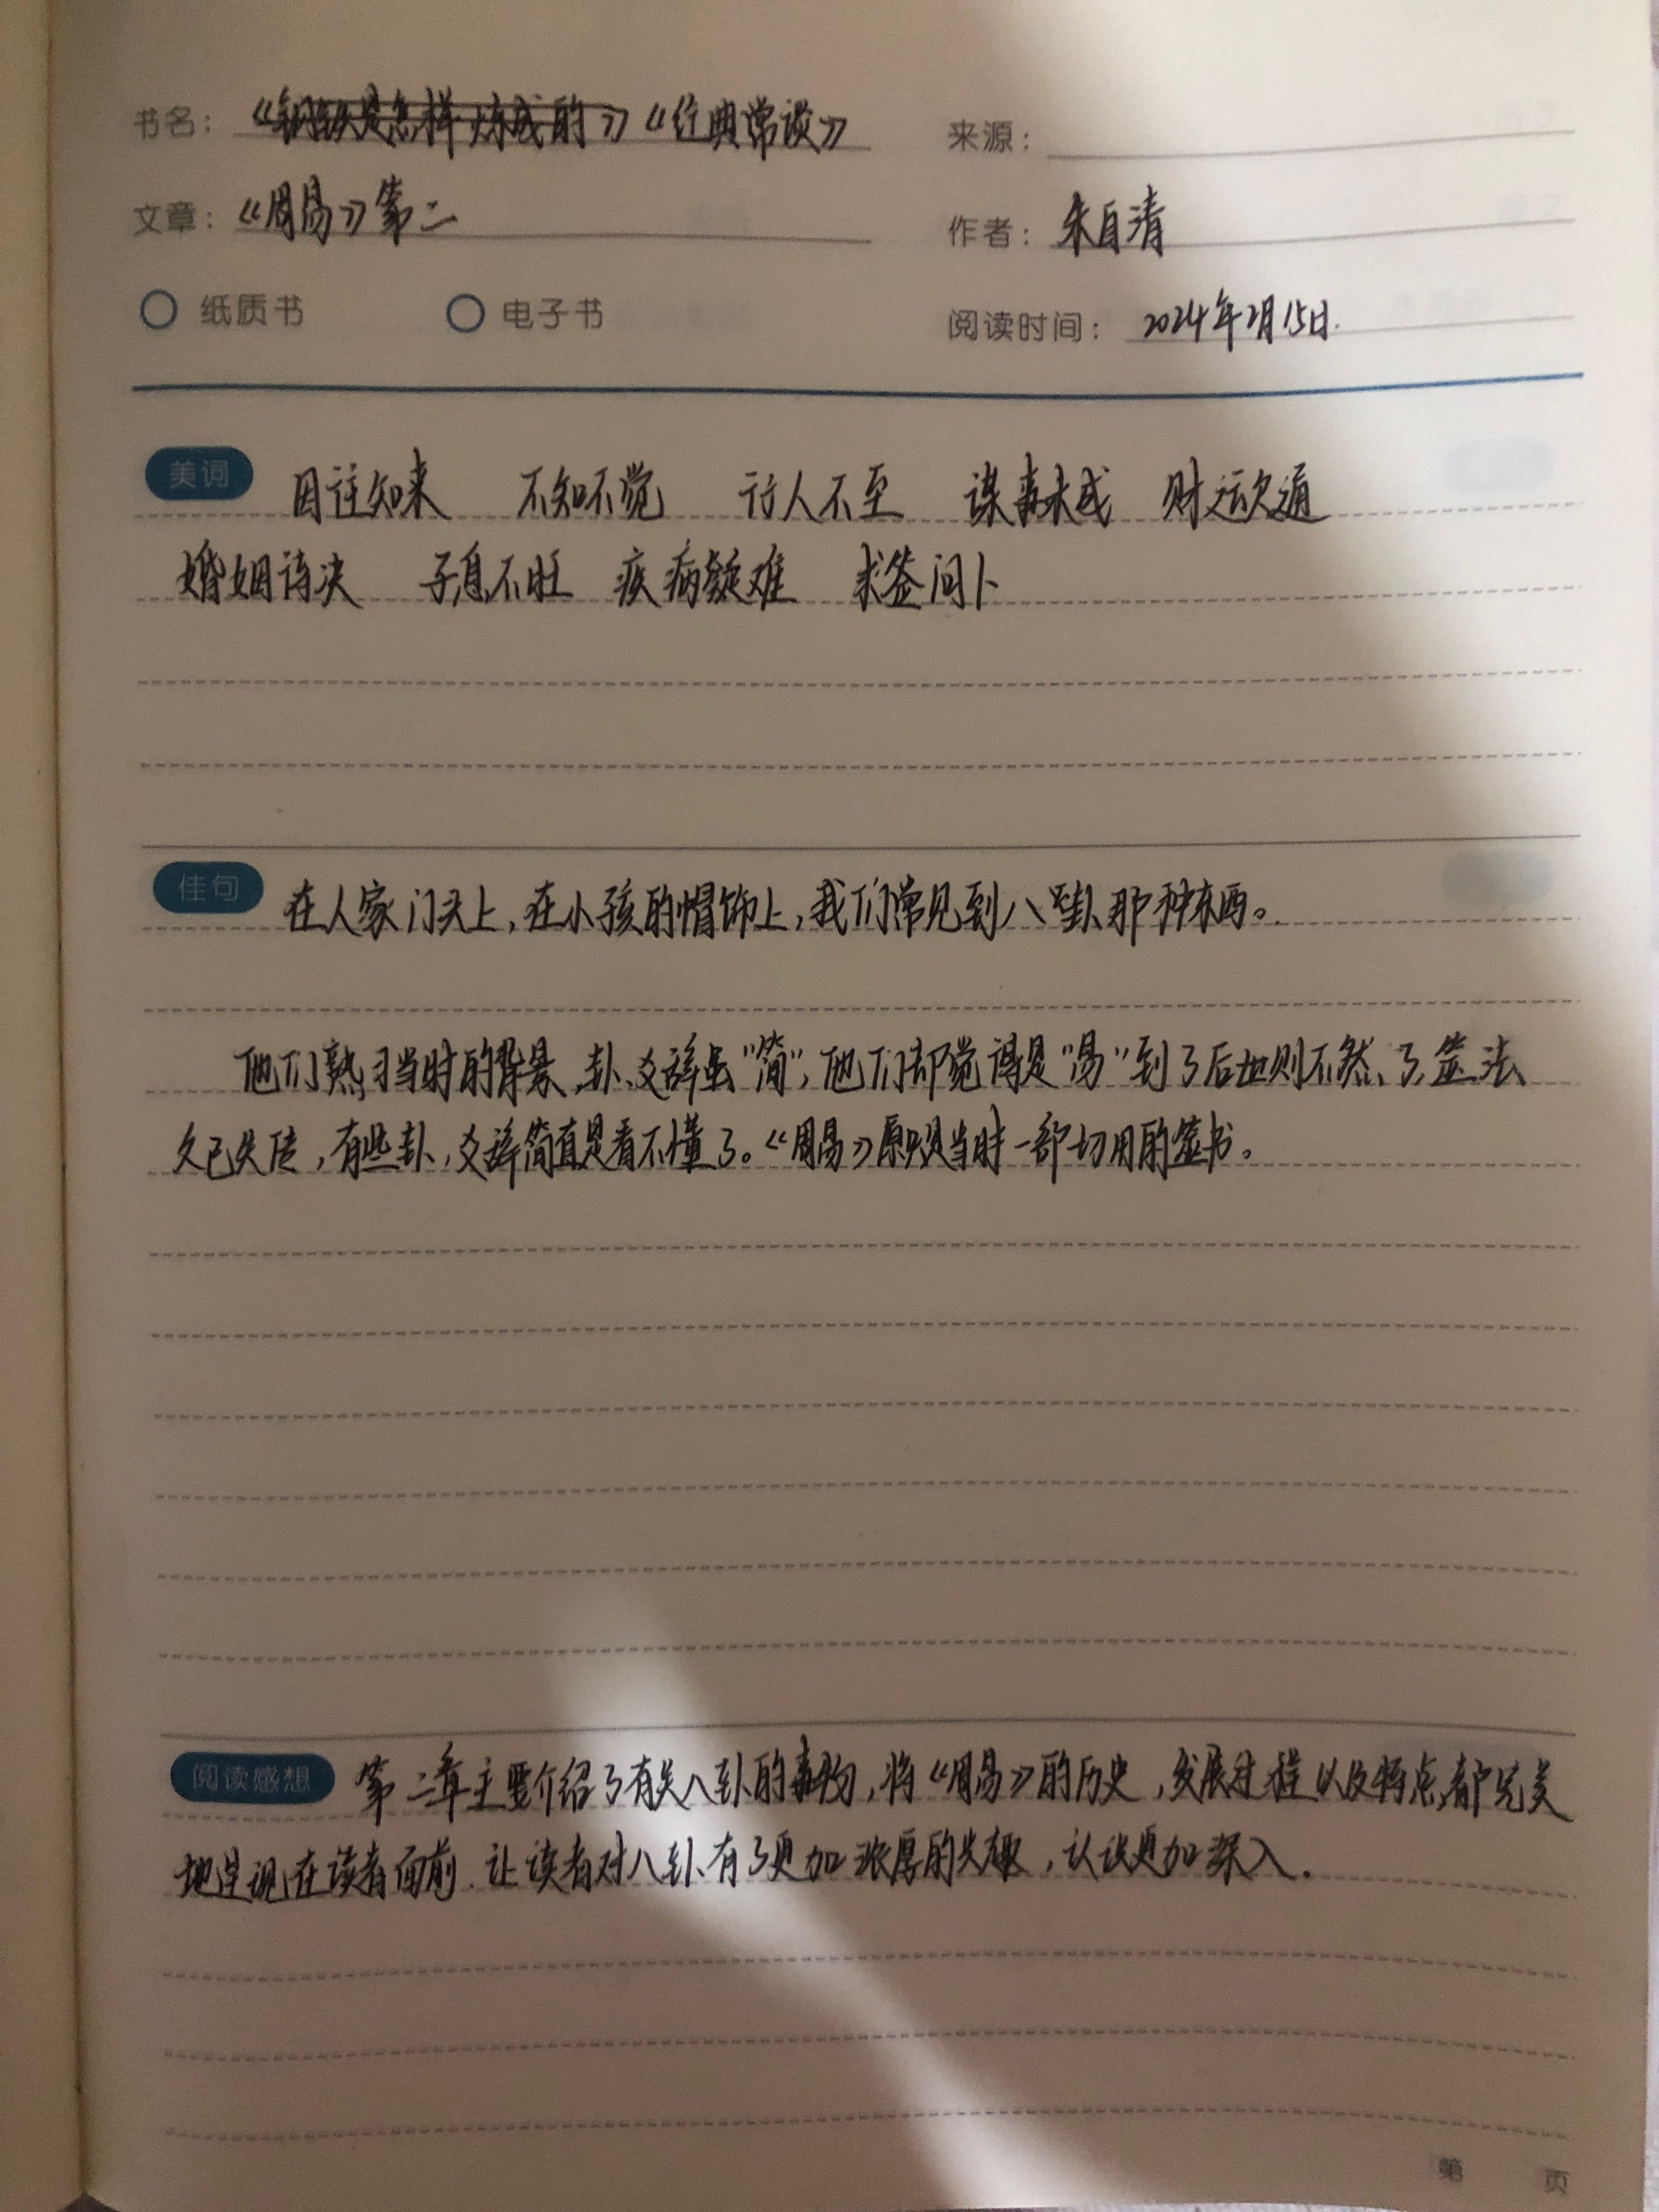 书名：《钢铁是怎样炼成的》《经典常谈》
来源：
文章：《周易》第二
作者：朱自清
纸质书 电子书
阅读时间：2024年2月15日.
美词 因往知来 不知不觉 行人不至 谋事未成 财运欠通
婚姻待决 子息不旺 疾病疑难 求签问卜
佳句 在人家门头上,在小孩的帽饰上,我们常见到八卦那种东西。
他们熟习当时的背景、卦、爻辞虽"简",他们却觉得是"易"到了后世则不然、了筮法
久已失传,有些卦、爻辞简直是看不懂了。《周易》原只是当时一部切用的筮书。
阅读感想 第二章主要介绍了有关八卦的事物,将《周易》的历史,发展过程以及特点,都完美
地呈现在读者面前.让读者对八卦有了更加浓厚的兴趣,认识更加深入.
第 页